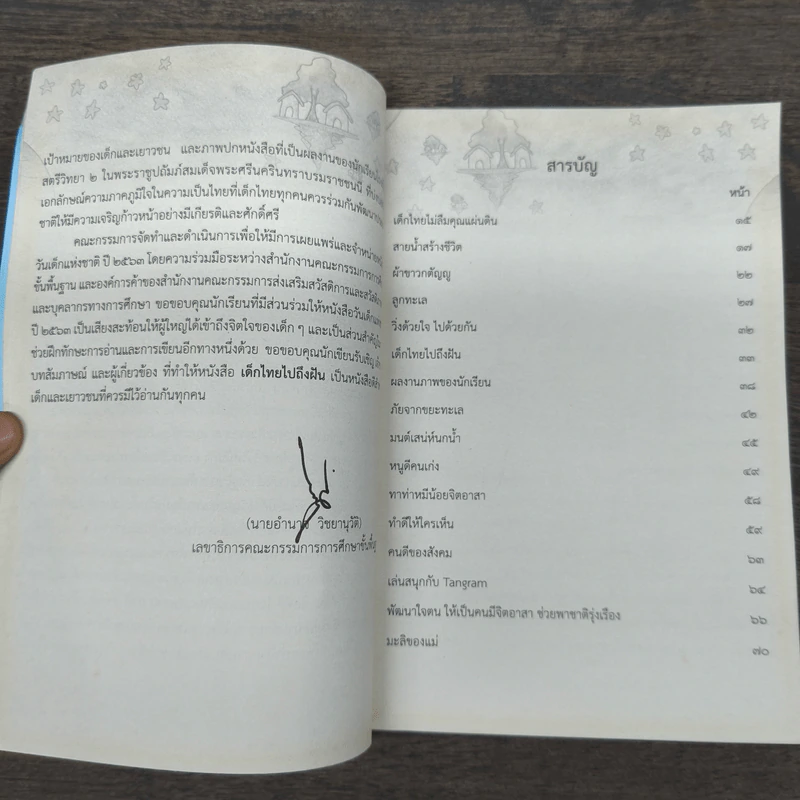 เป้าหมายของเด็กและเยาวชน และภาพปกหนังสือที่เป็นผลงานของนักเรียน
สตรีวิทยา ๒ ในพระราชูปถัมภ์สมเด็จพระศรีนครินทราบรมราชชนนี
เอกลักษณ์ความภาคภูมิใจในความเป็นไทยที่เด็กไทยทุกคนควรร่วมกันพัฒนา
ชาติให้มีความเจริญก้าวหน้าอย่างมีเกียรติและศักดิ์ศรี
คณะกรรมการจัดทำและดำเนินการเพื่อให้มีการเผยแพร่และจำหน่าย
วันเด็กแห่งชาติ ปี ๒๕๖๓ โดยความร่วมมือระหว่างสำนักงานคณะกรรมการการ
ขั้นพื้นฐาน และองค์การค้าของสำนักงานคณะกรรมการส่งเสริมสวัสดิการและ
และบุคลากรทางการศึกษา ขอขอบคุณนักเรียนที่มีส่วนร่วมให้หนังสือวันเด็ก
ปี ๒๕๖๓ เป็นเสียงสะท้อนให้ผู้ใหญ่ได้เข้าถึงจิตใจของเด็ก ๆ และเป็นส่วนสำคัญ
ช่วยฝึกทักษะการอ่านและการเขียนอีกทางหนึ่งด้วย ขอขอบคุณนักเขียนรับเชิญ
บทสัมภาษณ์ และผู้เกี่ยวข้อง ที่ทำให้หนังสือ เด็กไทยไปถึงฝัน เป็นหนังสือ
เด็กและเยาวชนที่ควรมีไว้อ่านกันทุกคน
(นายอำนาจ วิชยานุวัติ)
เลขาธิการคณะกรรมการการศึกษาขั้นพื้น
สารบัญ
หน้า
เด็กไทยไม่ลืมคุณแผ่นดิน ๑๕
สายน้ำสร้างชีวิต ๑๗
ผ้าขาวกตัญญู ๒๒
ลูกทะเล ๒๗
วิ่งด้วยใจ ไปด้วยกัน ๓๒
เด็กไทยไปถึงฝัน ๓๓
ผลงานภาพของนักเรียน ๓๘
ภัยจากขยะทะเล ๔๒
มนต์เสน่ห์นกน้ำ ๔๕
หนูดีคนเก่ง ๔๙
ทาท่าหมีน้อยจิตอาสา ๕๘
ทำดีให้ใครเห็น ๕๙
คนดีของสังคม ๖๓
เล่นสนุกกับ Tangram ๖๔
พัฒนาใจตน ให้เป็นคนมีจิตอาสา ช่วยพาชาติรุ่งเรือง ๖๖
มะลิของแม่ ๗๐